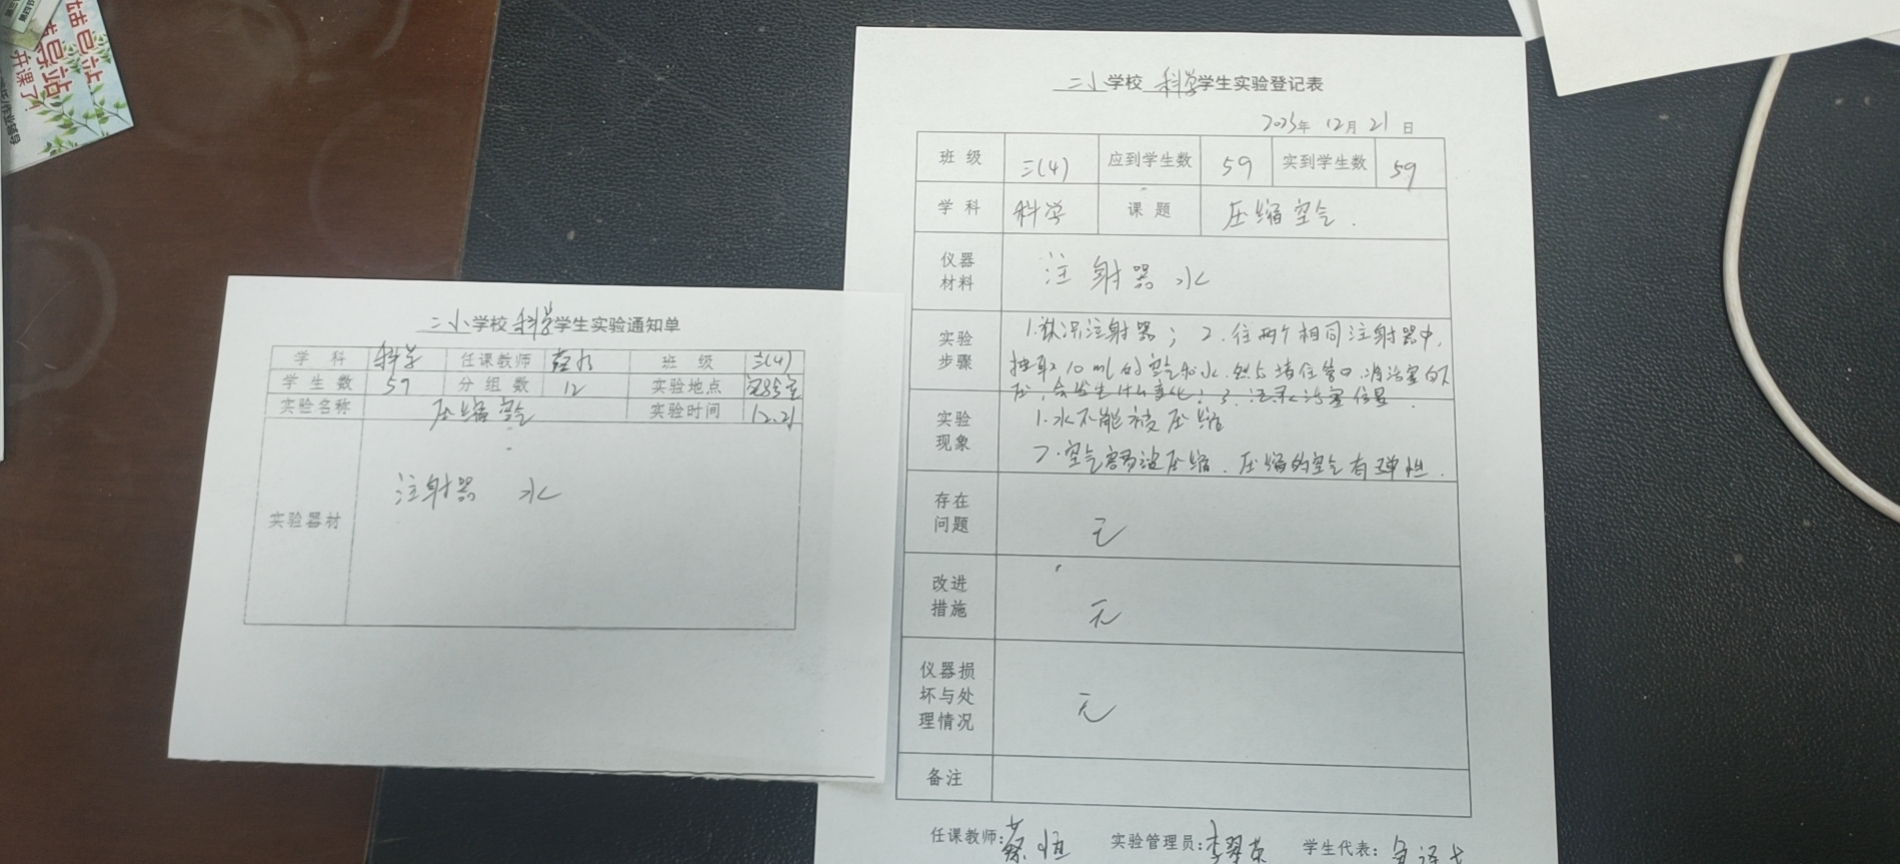 开课了!
二小学校 科学学生实验通知单
学 科 科学 任课教师 班 级 三(4)
学 生 数 59 分 组 数 12 实验地点 实验室
实验名称 压缩空气 实验时间 12.21
实验器材 注射器 水
二小学校 科学学生实验登记表
2023年 12月 21日
班 级 三(4) 应到学生数 59 实到学生数 59
学 科 科学 课 题 压缩空气.
仪器材料 注射器 水
实验步骤 1.认识注射器; 2.往两个相同注射器中,
抽取10ml的空气和水.然后堵住管口.将活塞向下
压,会发生什么变化; 3.记录活塞位置.
实验现象 1.水不能被压缩
2.空气容易被压缩.压缩的空气有弹性.
存在问题 无
改进措施 无
仪器损坏与处理情况 无
备注
任课教师: 蔡恒 实验管理员: 李翠英 学生代表: